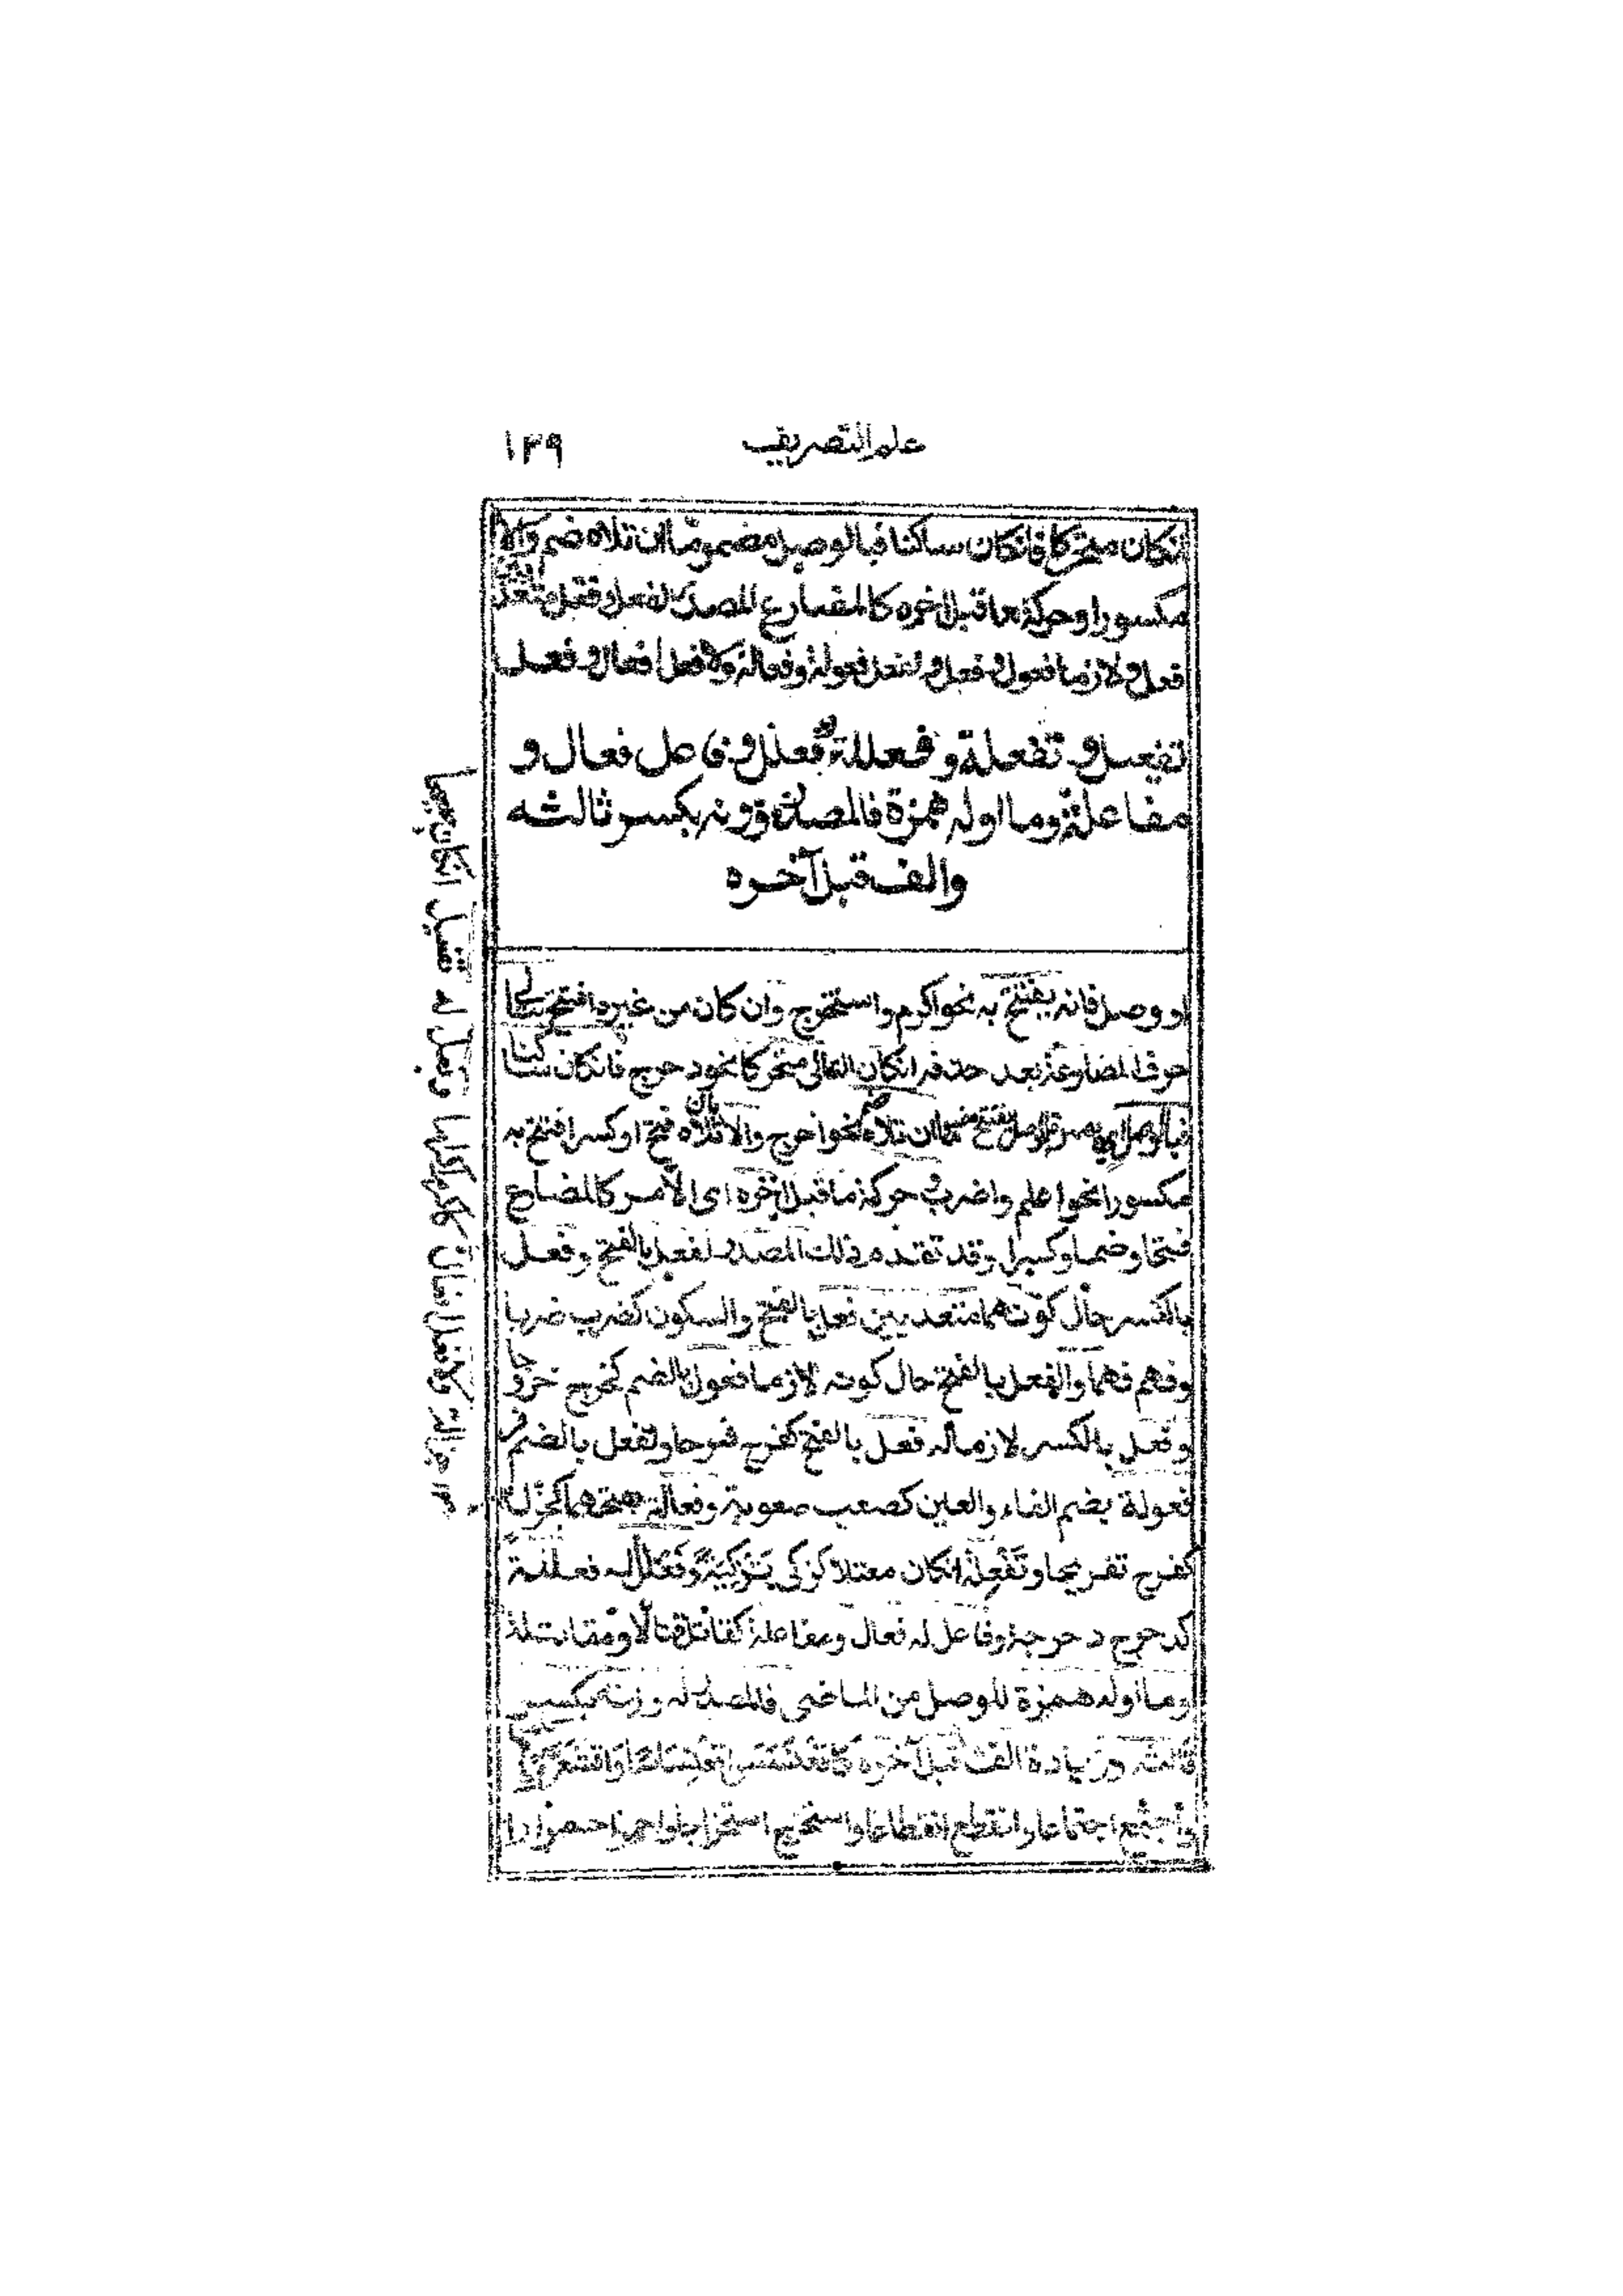 علم التصريف ١٣٩
انكان متحركا فانكان ساكنا فبالوصل مضموما ان تلاه ضم والا
مكسورا وحركة ما قبل اخره كالمضارع المصدر لفعل وفعل متعديا
فعل ولازما فعول وفعل ولفعل فعولة وفعالة ولافعل افعال وفعل
تفعيل وتفعلة وفعللة لفعلل وفاعل فعال و
مفاعلة وما اوله همزة فالمصدر وزنه بكسر ثالثه
والف قبل آخره
او وصل فانه يفتتح به نحو اكرم واستخرج وان كان من غيره افتتح بتالي
حرف المضارعة بعد حذفه انكان التالي متحركا نحو دحرج فانكان ساكنا
فبالوصل اي بهمزة الوصل يفتتح مضموما ان تلاه ضم نحو اخرج والا بان تلاه فتح او كسر افتتح به
مكسورا نحو اعلم واضرب وحركة ما قبل اخره اى الأمر كالمضارع
فتحا وضما وكسرا وقد تقدم ذلك المصدر لفعل بالفتح وفعل
بالكسر حال كونهما متعديين فعل بالفتح والسكون كضرب ضربا
وفهم فهما والفعل بالفتح حال كونه لازما فعول بالضم كخرج خروجا
وفعل بالكسر لازما له فعل بالفتح كفرح فرحا ولفعل بالضم
فعولة بضم الفاء والعين كصعب صعوبة وفعالة بفتحهما كجزل
كفرح تفريحا وتَفْعِلة انكان معتلا كزكى تَزْكِيَة وفَعْلَلَ له فعللة
كدحرج دحرجة وفاعل له فعال ومفاعلة كقاتل قتالا ومقاتلة
وما اوله همزة للوصل من الماضى فالمصدر له وزنه بكسر
ثالثه وزيادة الف قبل آخره كاقعنسس اقعنساسا واقشعر
واجتمع اجتماعا وانقطع انقطاعا واستخرج استخراجا واحمر احمرارا